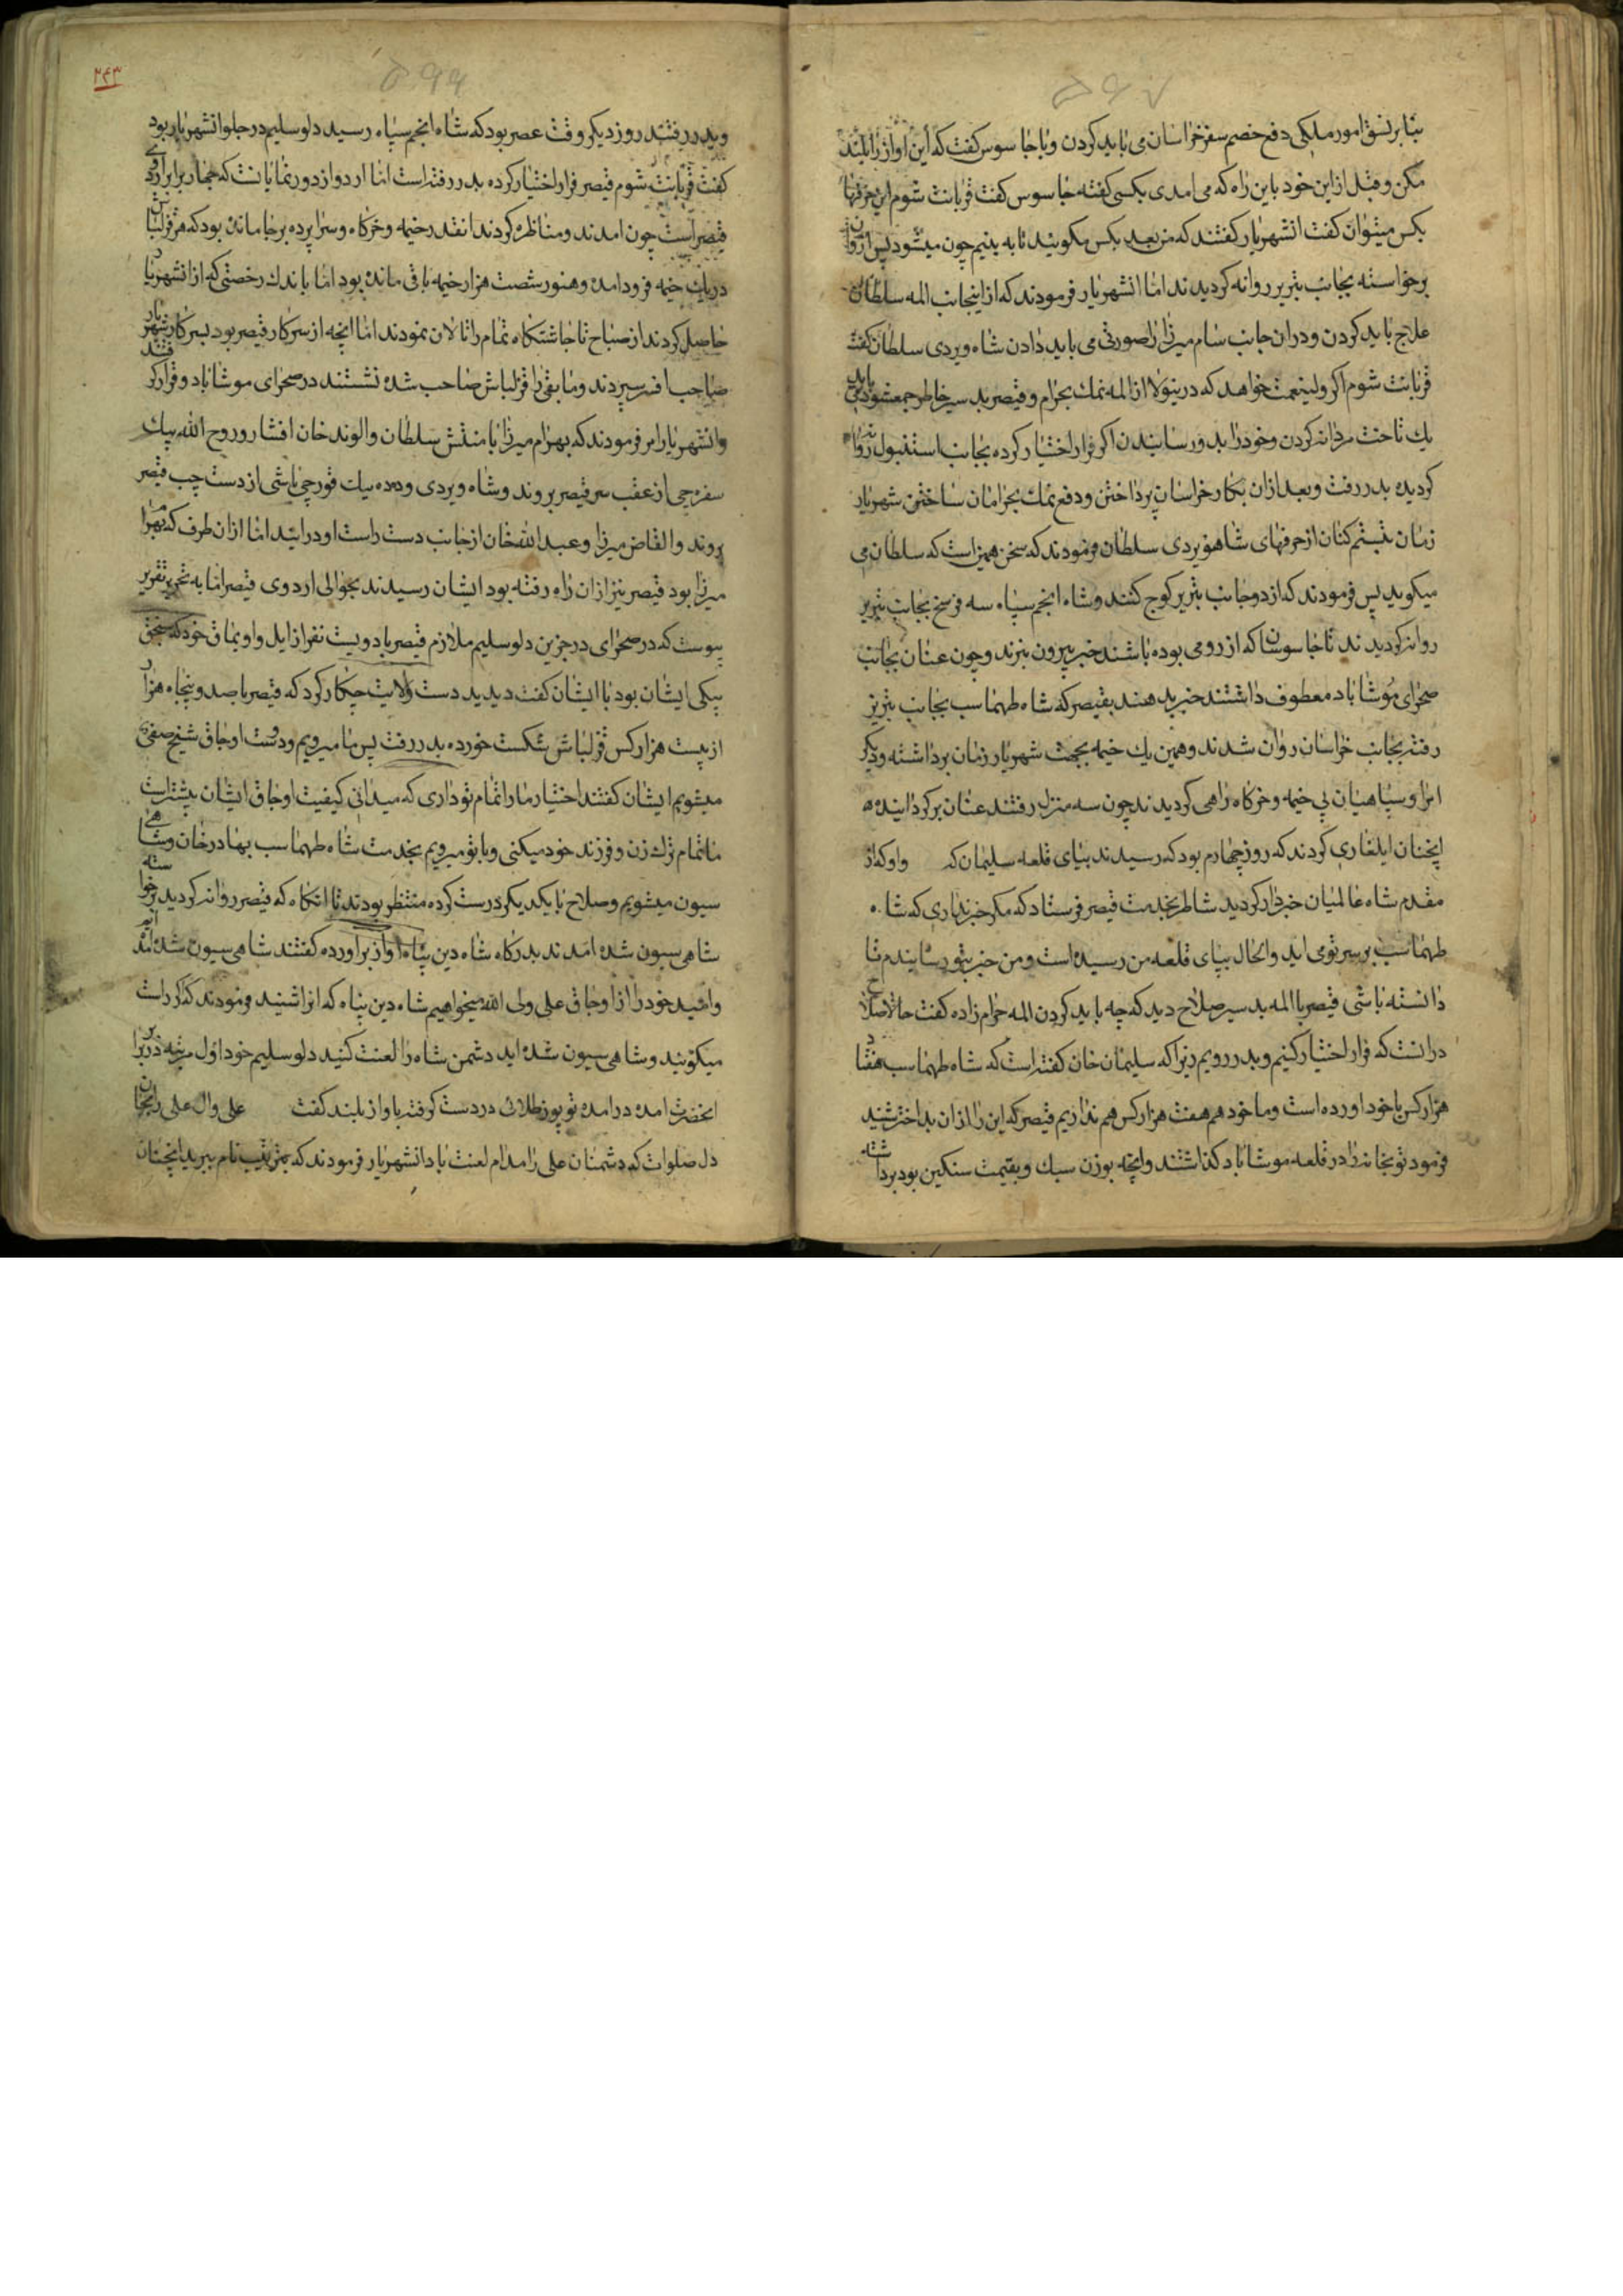 ۵۹۷
بنابر نسق امور ملکی دفع خصم سفر خراسان می باید کردن و با جاسوس کفت که این اواز را بلند
مکن و قبل ازین خود باین راه که می امدی بکسی کفته جاسوس کفت قربانت شوم این حرفها
بکس میتوان کفت انشهریار کفتند که من بعد بکس مکویید تا به بینیم چون میشود پس از
برخواسته بجانب تبریز روانه کردیدند اما انشهریار فرمودند که از اینجانب المه سلطان
علاج باید کردن و دران جانب سام میرزا را صورتی می باید دادن شاه ویردی سلطان کفت
قربانت شوم اکر ولینعمت خواهد که درینولا از المه نمک بحرام و قیصر بد سیر خاطر جمع شود می باید
یک تاخت مردانه کردن و خود را بدو رسانیدن اکر فرار اختیار کرده بجانب استنبول روانه
کردیده بدر رفت و بعد ازان بکار خراسان پرداختن و دفع نمک بحرامان ساختن شهریار
زمان تبسم کنان از حرفهای شاهویردی سلطان فرمودند که سخن همین است که سلطان می
میکوید پس فرمودند که از دو جانب تبریز کوچ کنند و شاه انجم سپاه سه فرسخ بجانب تبریز
روانه کردیدند تا جاسوسان که از رومی بوده باشند خبر بیرون ببرند و چون عنان بجانب
صحرای موشاباد معطوف داشتند خبر بدهند بقیصر که شاه طهماسب بجانب تبریز
رفته بجانب خراسان روان شدند و همین یک خیمه بجهت شهریار زمان برداشته و دیکر
امرا و سپاهیان بی خیمه و خرکاه راهی کردیدند چون سه منزل رفتند عنان برکردانیده
انچنان ایلغاری کردند که روز چهارم بود که رسیدند بپای قلعه سلیمان که او که از
مقدم شاه عالمیان خبردار کردید شاطر بخدمت قیصر فرستاد که مکر خبر نداری که شاه
طهماسب بر سر تو می اید و الحال بپای قلعه من رسیده است و من خبر بتو رسانیدم تا
دانسته باشی قیصر با المه بد سیر صلاح دید که چه باید کردن المه حرام زاده کفت حالا صلاح
درانست که فرار اختیار کنیم و بدر رویم زیرا که سلیمان خان کفته است که شاه طهماسب هفتاد
هزار کس با خود اورده است و ما خود هم هفت هزار کس هم نداریم قیصر که این را ازان بداختر شنید
فرمود توبخانه را در قلعه موشاباد کذاشتند و انچه بوزن سبک و بقیمت سنکین بود برداشته
۲۴۳
وبدر رفتند روز دیکر وقت عصر بود که شاه انجم سپاه رسید دلو سلیم در جلو انشهریار بود
کفت قربانت شوم قیصر فرار اختیار کرده بدر رفته است اما اردو از دور نمایانست که همچنان برابر اردوی
قیصر است چون امدند و مناظره کردند انقدر خیمه و خرکاه و سراپرده برجا مانده بود که هر قزلباش
در یک خیمه فرود امده و هنوز شصت هزار خیمه باقی مانده بود اما باندک رخصتی که از انشهریار
حاصل کردند از صباح تا چاشتکاه تمام را تالان نمودند اما انچه از سرکار قیصر بود بسرکار شهریار
صاحب افسر سپردند و مابقی را قزلباش صاحب شده نشستند در صحرای موشاباد و قرار کرفتند
وانشهریار امر فرمودند که بهرام میرزا با منتش سلطان و الوند خان افشار و روح الله بیک
سفره چی از عقب سر قیصر بروند و شاه ویردی و دده بیک قورچی باشی از دست چپ قیصر
بروند و القاص میرزا و عبدالله خان از جانب دست راست او درایند اما ازان طرف که بهرام
میرزا بود قیصر نیز ازان راه رفته بود ایشان رسیدند بحوالی اردوی قیصر اما به تحریر تقریر
پیوست که در صحرای درجزین دلو سلیم ملازم قیصر با دویست نفر از ایل و اویماق خود که سنجق
بیکی ایشان بود با ایشان کفت دیدید دست ولایت چکار کرد که قیصر با صد و پنجاه هزار
از بیست هزار کس قزلباش شکست خورده بدر رفت پس ما میرویم و دوست اوجاق شیخ صفی
میشویم ایشان کفتند اختیار ما را تمام تو داری که میدانی کیفیت اوجاق ایشان بیشتر است
ما تمام ترک زن و فرزند خود میکنی و با تو میرویم بخدمت شاه طهماسب بهادر خان و شاهی
سیون میشویم و صلاح با یکدیکر درست کرده منتظر بودند تا انکاه که قیصر روانه کردید برخواسته
شاهی سیون شده امدند بدرکاه شاه دین پناه اواز براورده کفتند شاهی سیون شده امده ایم
و امید خود را از اوجاق علی ولی الله میخواهیم شاه دین پناه که انرا شنید فرمودند که اکر راست
میکوئید و شاهی سیون شده اید دشمن شاه را لعنت کنید دلو سلیم خود اول مرتبه در برابر
انحضرت امده درامده توپوز طلائی در دست کرفته باواز بلند کفت علی و ال علی را بجان
دل صلوات که دشمنان علی را مدام لعنت باد انشهریار فرمودند که بترتیب نام ببرید انچنان